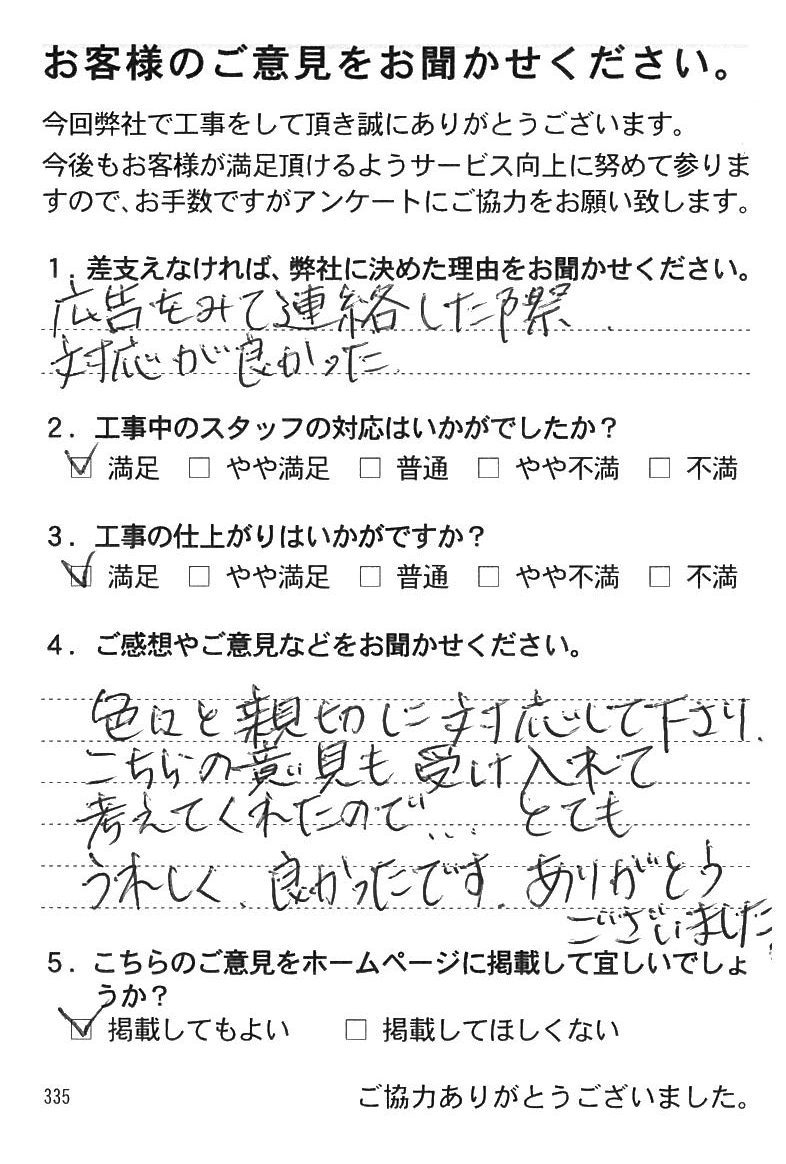 お客様のご意見をお聞かせください。
今回弊社で工事をして頂き誠にありがとうございます。
今後もお客様が満足頂けるようサービス向上に努めて参りま
すので、お手数ですがアンケートにご協力をお願い致します。
1．差支えなければ、弊社に決めた理由をお聞かせください。
広告をみて連絡した際、
対応が良かった。
2．工事中のスタッフの対応はいかがでしたか？
☑ 満足 □ やや満足 □ 普通 □ やや不満 □ 不満
3．工事の仕上がりはいかがですか？
☑ 満足 □ やや満足 □ 普通 □ やや不満 □ 不満
4．ご感想やご意見などをお聞かせください。
色々と親切に対応して下さり、
こちらの意見も受け入れて
考えてくれたので… とても
うれしく、良かったです。ありがとう
ございました。
5．こちらのご意見をホームページに掲載して宜しいでしょ
うか？
☑ 掲載してもよい □ 掲載してほしくない
335 ご協力ありがとうございました。